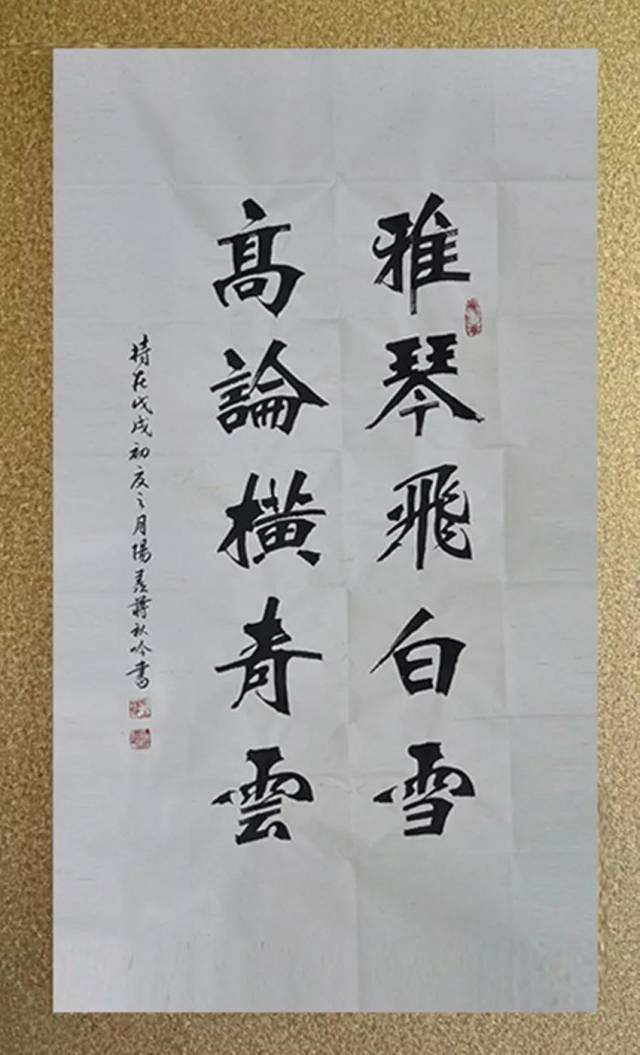 雅琴飛白雪
高論橫青雲
時在戊戌初夏之月陽羨蔣秋吟書